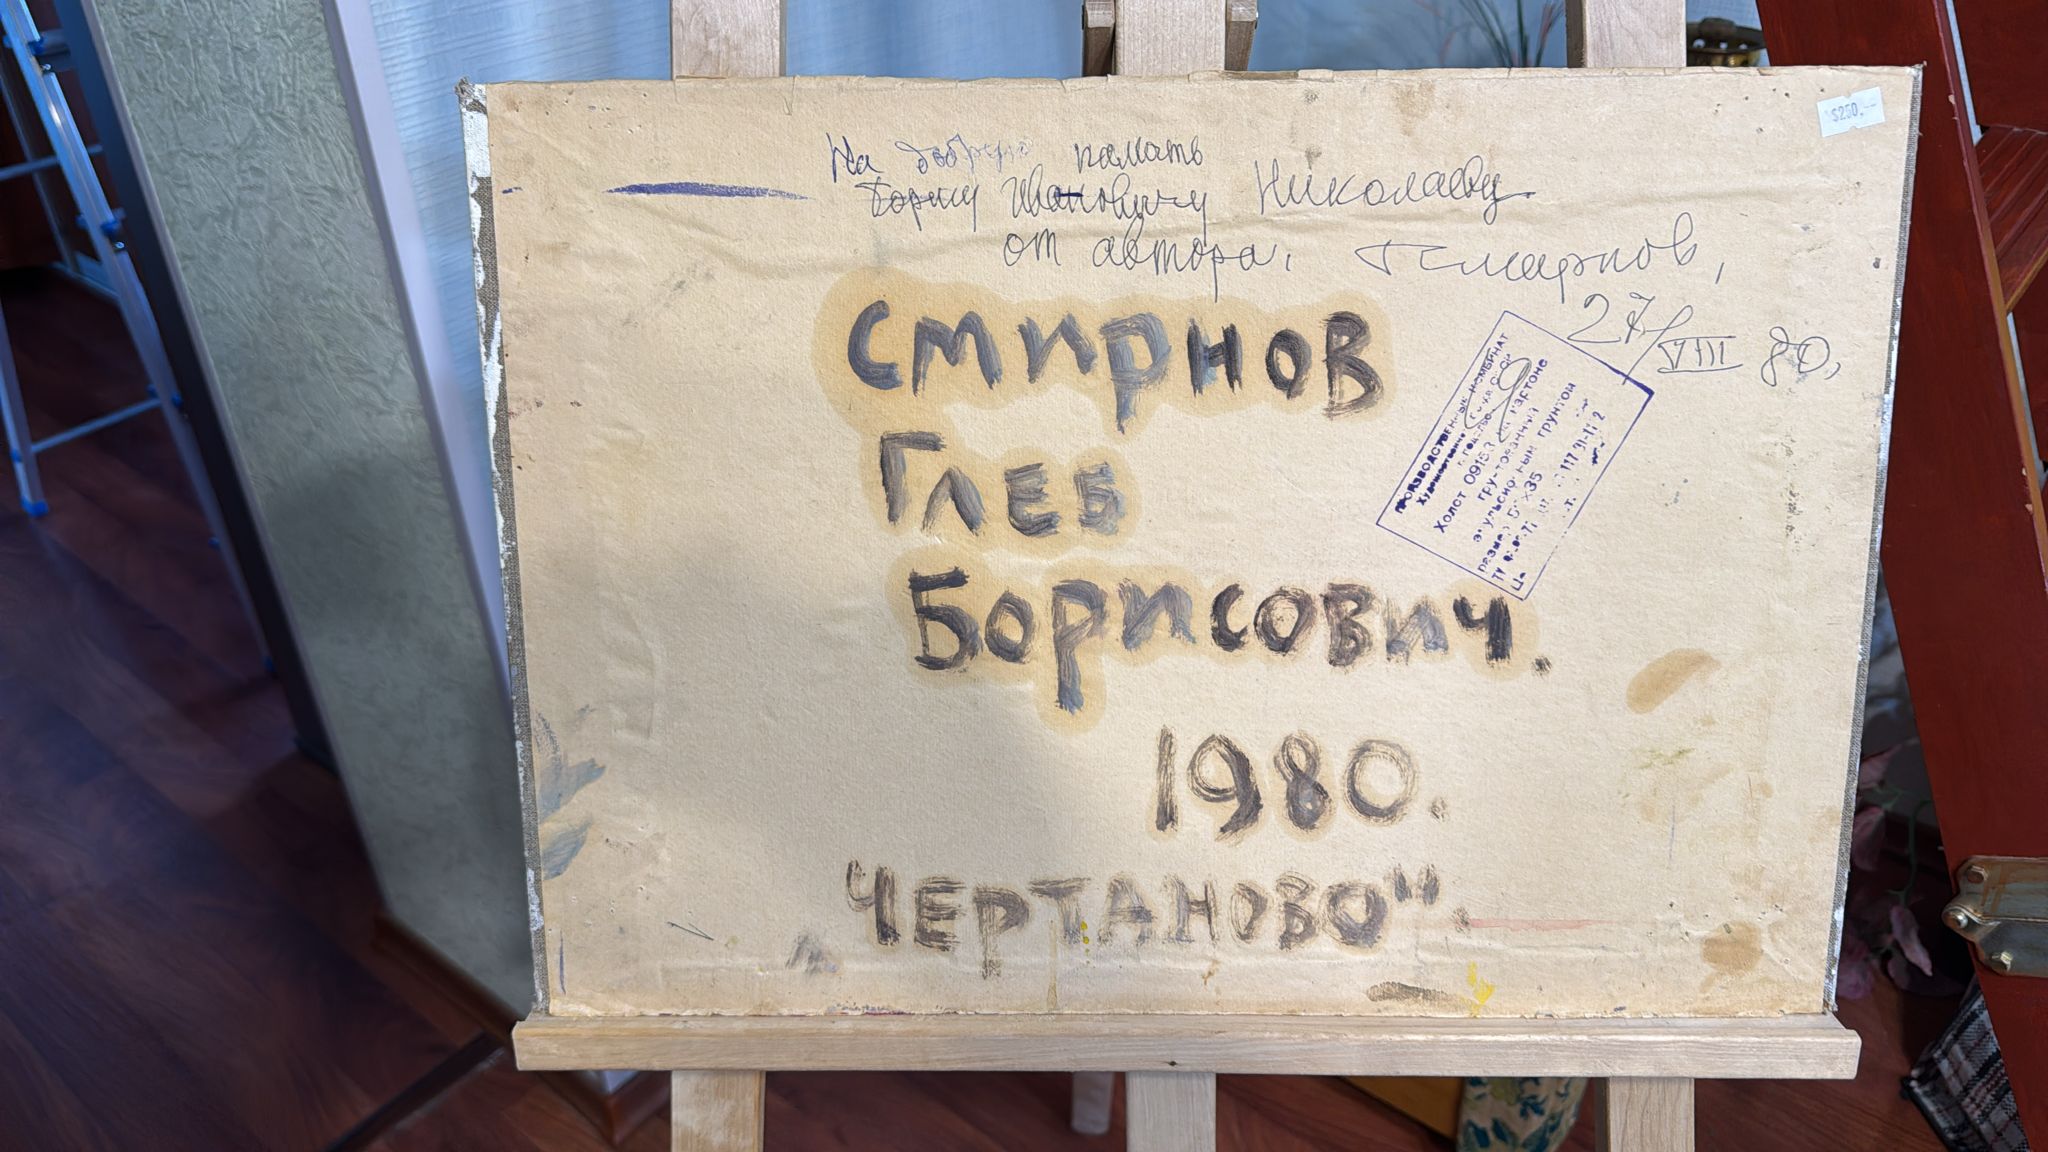 $250.--
На добрую память
Борису Ивановичу Николаевцу
от автора. ГСмирнов,
27/VIII 80,
Смирнов
Глеб
Борисович.
1980.
"Чертаново".
ПРОИЗВОДСТВЕННЫЙ КОМБИНАТ
Художественного
Холст на картоне
грунтованный
эмульсионным грунтом
размер х35
ТУ